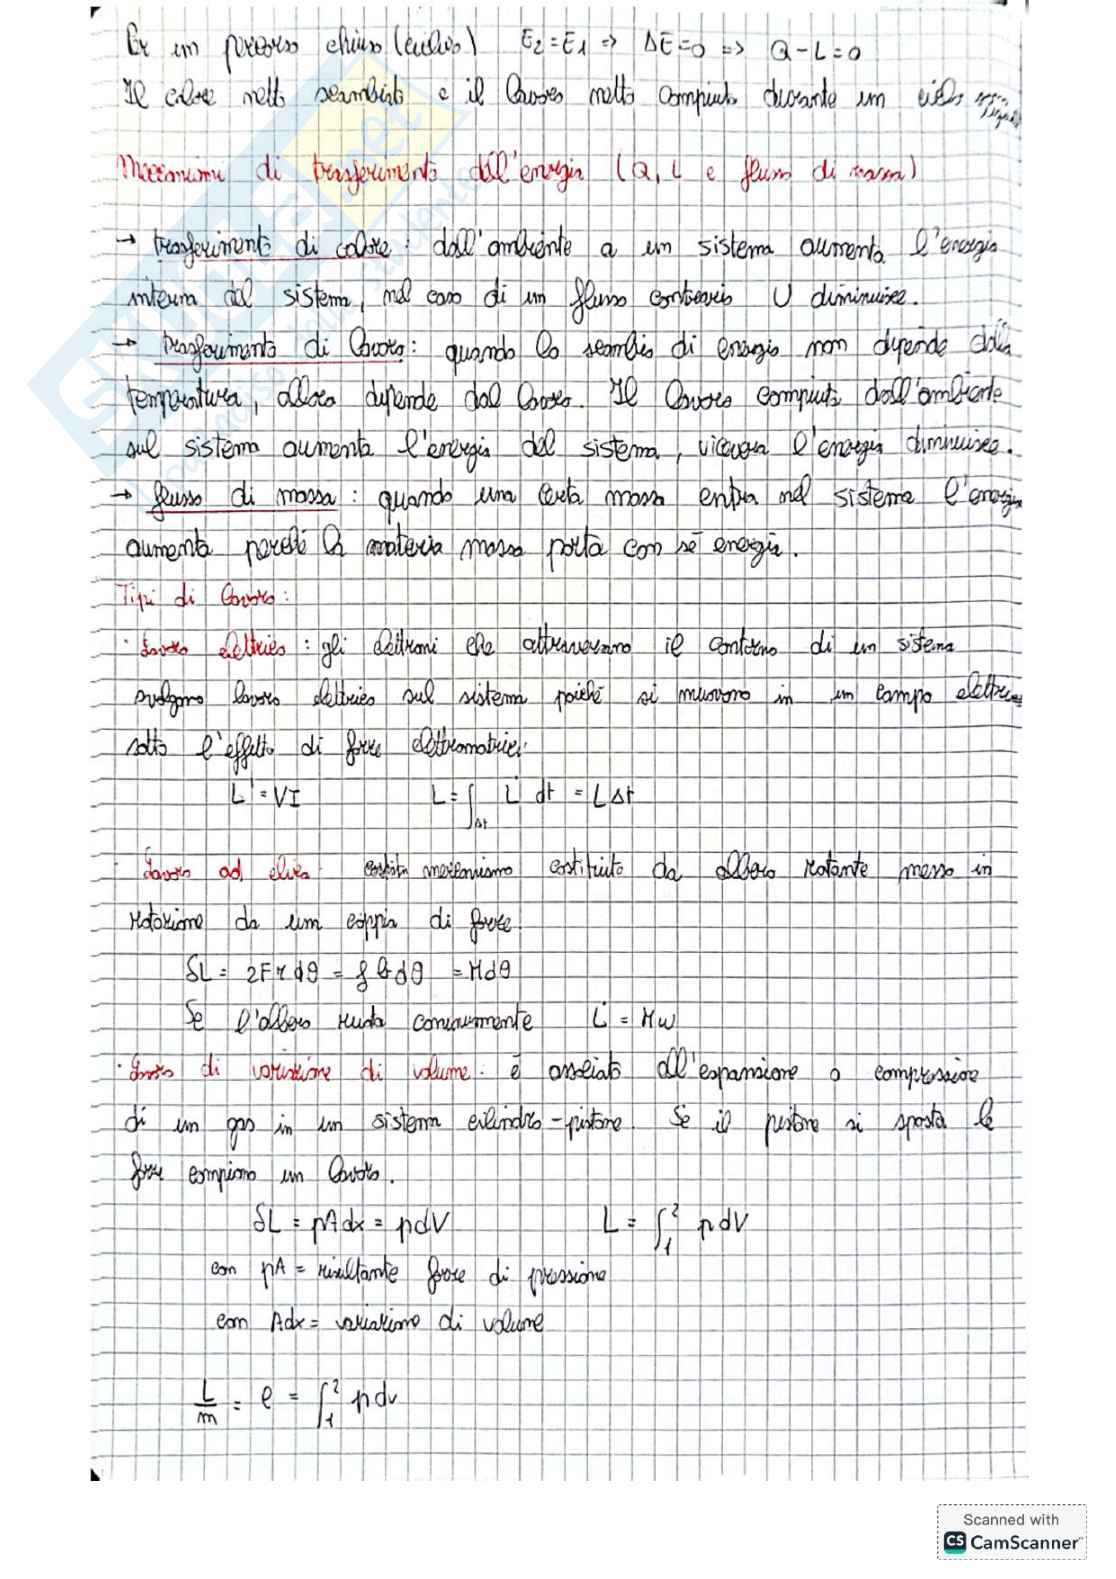 Per un percorso chiuso (ciclico) E2 = E1 => ΔE = 0 => Q - L = 0
Il calore netto scambiato e il lavoro netto compiuto durante un ciclo
Meccanismi di trasferimento dell'energia (Q, L e flusso di massa)
→ trasferimento di calore: dall'ambiente a un sistema aumenta l'energia
interna del sistema, nel caso di un flusso contrario U diminuisce.
→ trasferimento di lavoro: quando lo scambio di energia non dipende dalla
temperatura, allora dipende dal lavoro. Il lavoro compiuto dall'ambiente
sul sistema aumenta l'energia del sistema, viceversa l'energia diminuisce.
→ flusso di massa: quando una certa massa entra nel sistema l'energia
aumenta perché la materia massa porta con sé energia.
Tipi di lavoro:
· Lavoro elettrico: gli elettroni che attraversano il contorno di un sistema
svolgono lavoro elettrico sul sistema poiché si muovono in un campo elettrico
sotto l'effetto di forze elettromotrici.
L̇ = VI L = ∫Δt L̇ dt = L̇Δt
· Lavoro ad elica: meccanismo costituito da albero rotante messo in
rotazione da una coppia di forze.
δL = 2Frdθ = f b dθ = Mdθ
Se l'albero ruota continuamente L̇ = Mω
· Lavoro di variazione di volume: è associato all'espansione o compressione
di un gas in un sistema cilindro-pistone. Se il pistone si sposta le
forze compiono un lavoro.
δL = pAdx = pdV L = ∫₁² pdV
con pA = risultante forze di pressione
con Adx = variazione di volume
L/m = ℓ = ∫₁² pdv
Scanned with
CS CamScanner